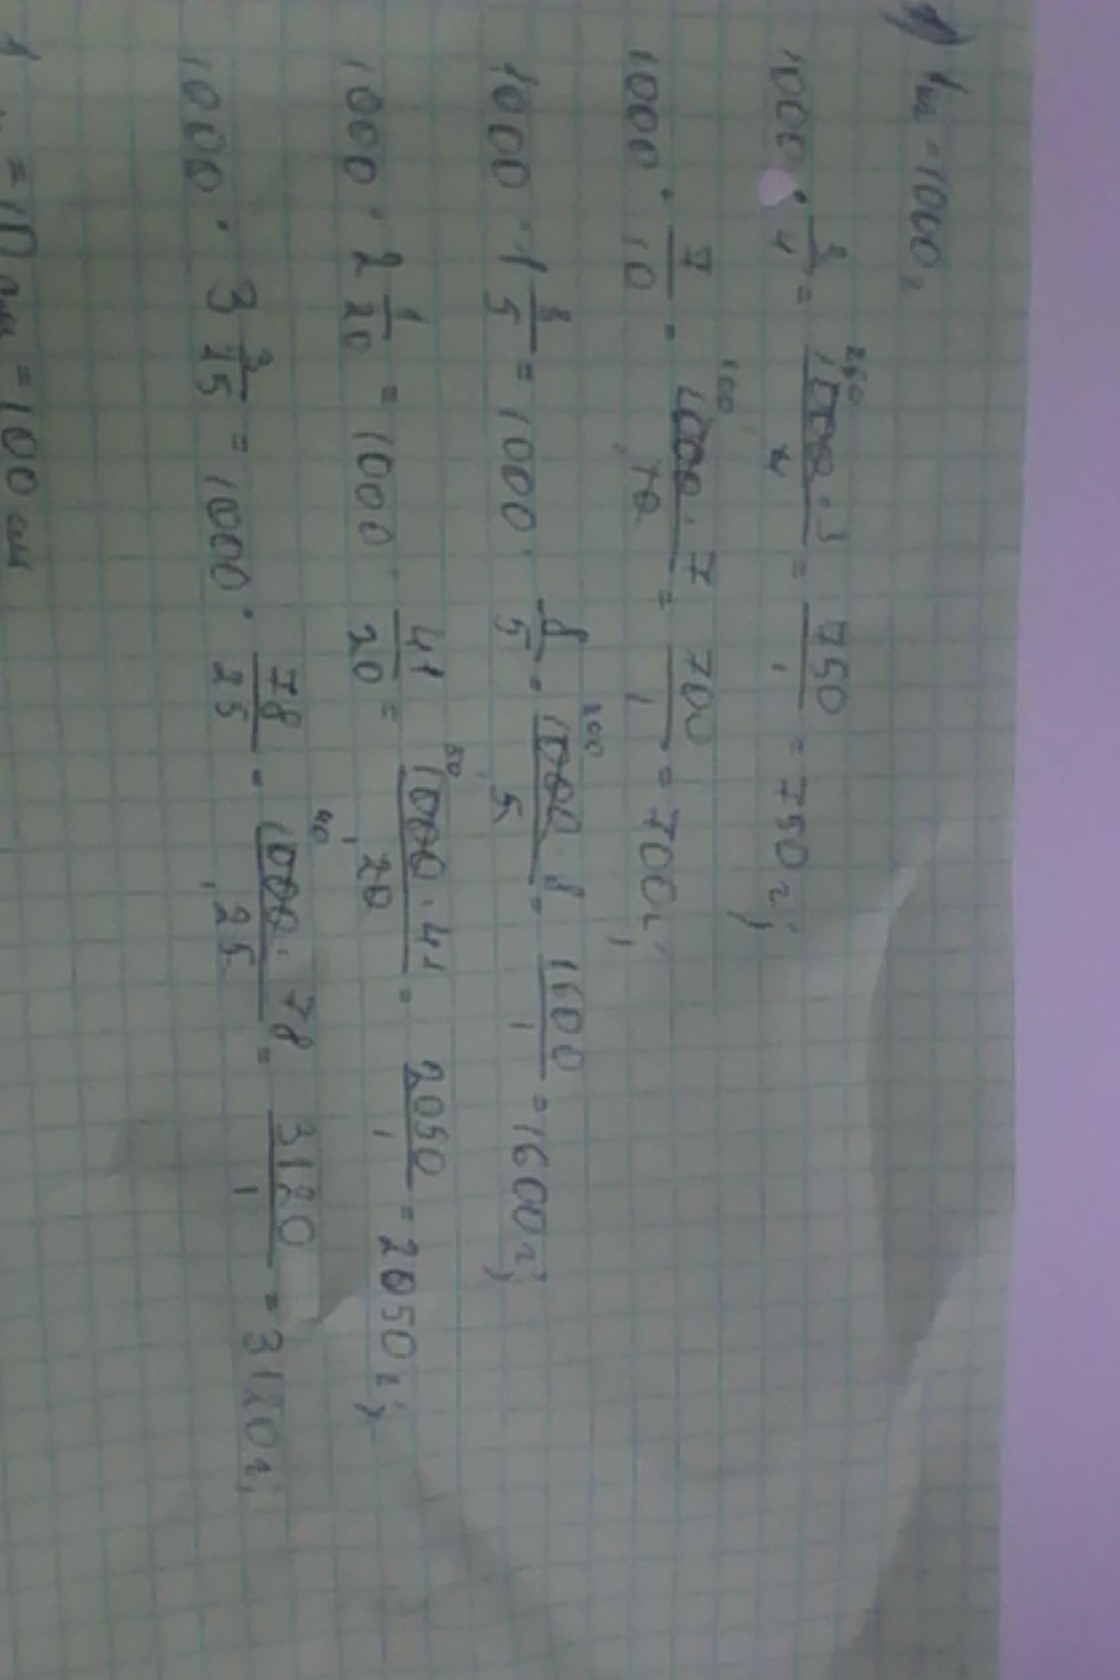 1) 1 кг = 1000 г
1000 · 3/4 = 1000 · 3 / 4 = 750/1 = 750 г;
1000 · 7/10 = 1000 · 7 / 10 = 700/1 = 700 г;
1000 · 1 3/5 = 1000 · 8/5 = 1000 · 8 / 5 = 1600/1 = 1600 г;
1000 · 2 1/20 = 1000 · 41/20 = 1000 · 41 / 20 = 2050/1 = 2050 г;
1000 · 3 3/25 = 1000 · 78/25 = 1000 · 78 / 25 = 3120/1 = 3120 г;
= 10 дм = 100 см